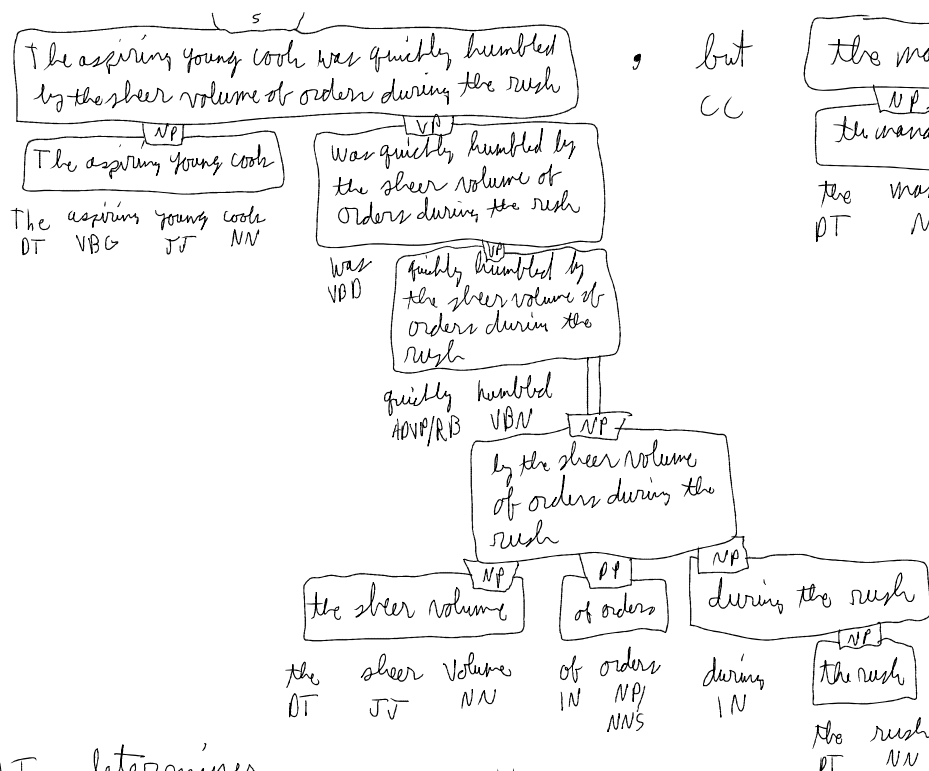 S
The aspiring young cook was quickly humbled
by the sheer volume of orders during the rush
, but
CC
the
NP
the
the
DT
NP
The aspiring young cook
The aspiring young cook
DT VBG JJ NN
VP
was quickly humbled by
the sheer volume of
orders during the rush
was
VBD
VP
quickly humbled by
the sheer volume of
orders during the
rush
quickly humbled
ADVP/RB VBN
NP
by the sheer volume
of orders during the
rush
NP
the sheer volume
the sheer volume
DT JJ NN
PP
of orders
of orders
IN NP/
NNS
NP
during the rush
during
IN
NP
the rush
the rush
DT NN